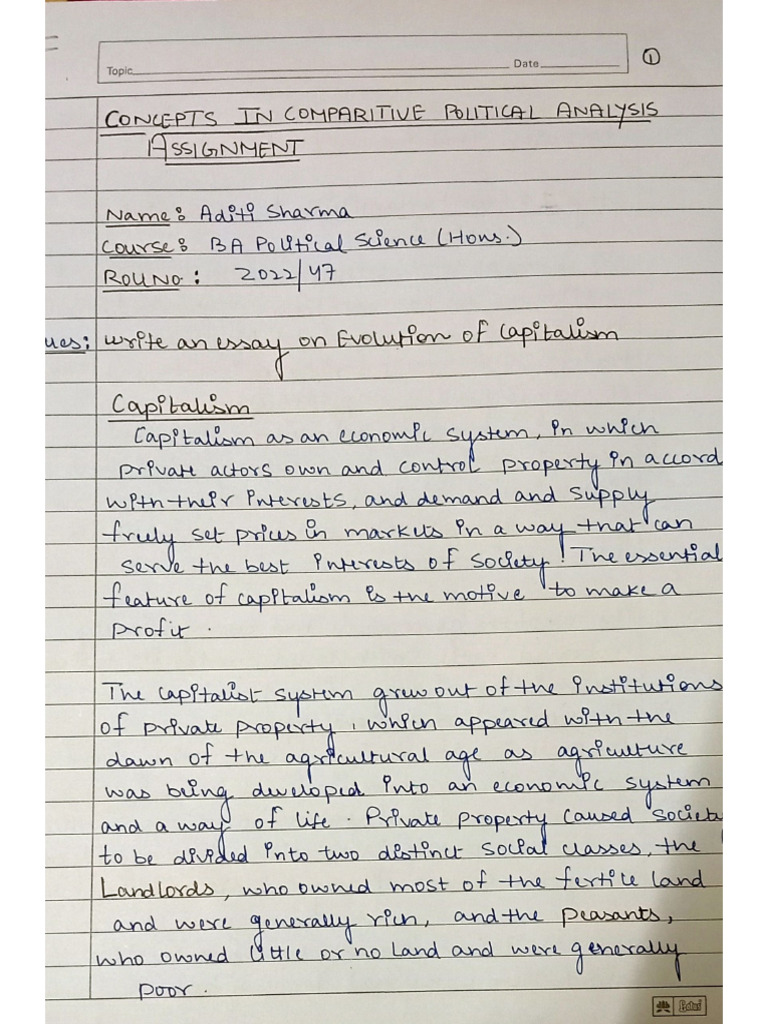 Topic Date
①
CONCEPTS IN COMPARITIVE POLITICAL ANALYSIS
ASSIGNMENT
Name: Aditi Sharma
Course: BA Political Science (Hons.)
ROLLNO: 2022/47
ues: Write an essay on Evolution of Capitalism
Capitalism
Capitalism as an economic system, in which
private actors own and control property in accord
with their interests, and demand and supply
freely set prices in markets in a way that can
serve the best interests of society. The essential
feature of capitalism is the motive to make a
profit.
The capitalist system grew out of the institutions
of private property, which appeared with the
dawn of the agricultural age as agriculture
was being developed into an economic system
and a way of life. Private property caused societ
to be divided into two distinct social classes, the
Landlords, who owned most of the fertile land
and were generally rich, and the peasants,
who owned little or no land and were generally
poor.